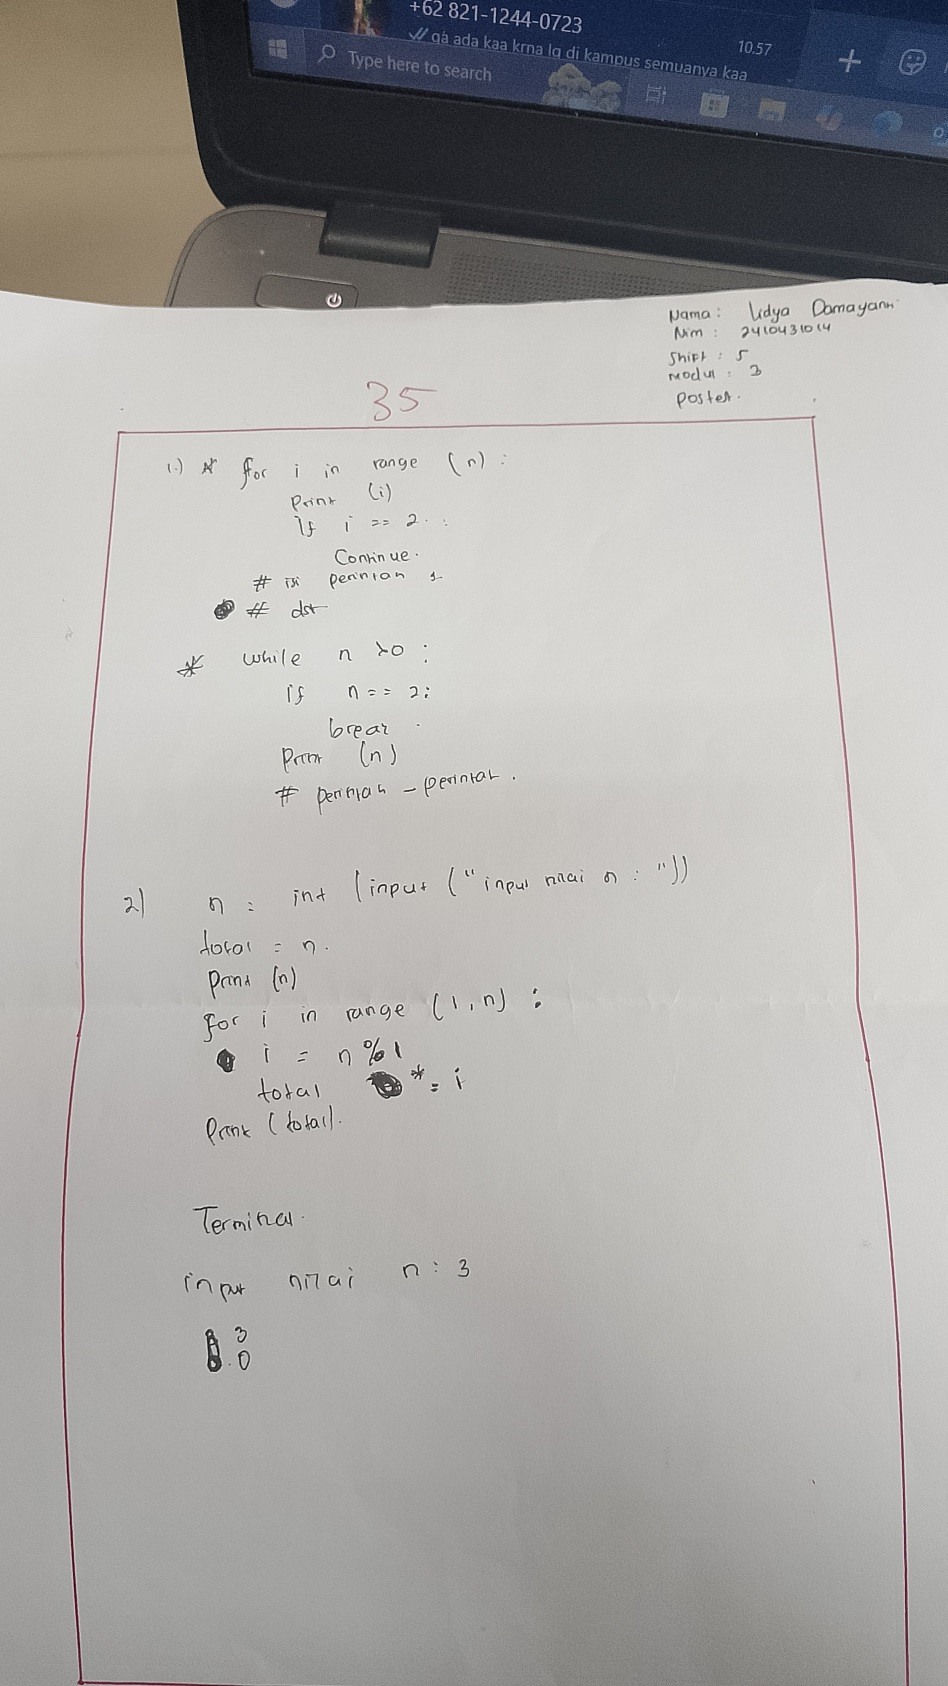 +62 821-1244-0723
gá ada kaa krna lg di kampus semuanya kaa
10.57
Type here to search
Nama : Lidya Damayanti
Nim : 2410431014
Shift : 5
Modul : 3
Postest.
35
1.) * for i in range (n) :
Print (i)
If i == 2 :
Continue.
# isi perintah 1
# dst
* while n >0 :
if n == 2 :
break
Print (n)
# perintah - perintah.
2) n = int (input ("input nilai n : "))
total = n.
Print (n)
for i in range (1, n) :
i = n % 1
total *= i
Print (total).
Terminal.
input nilai n : 3
3
0